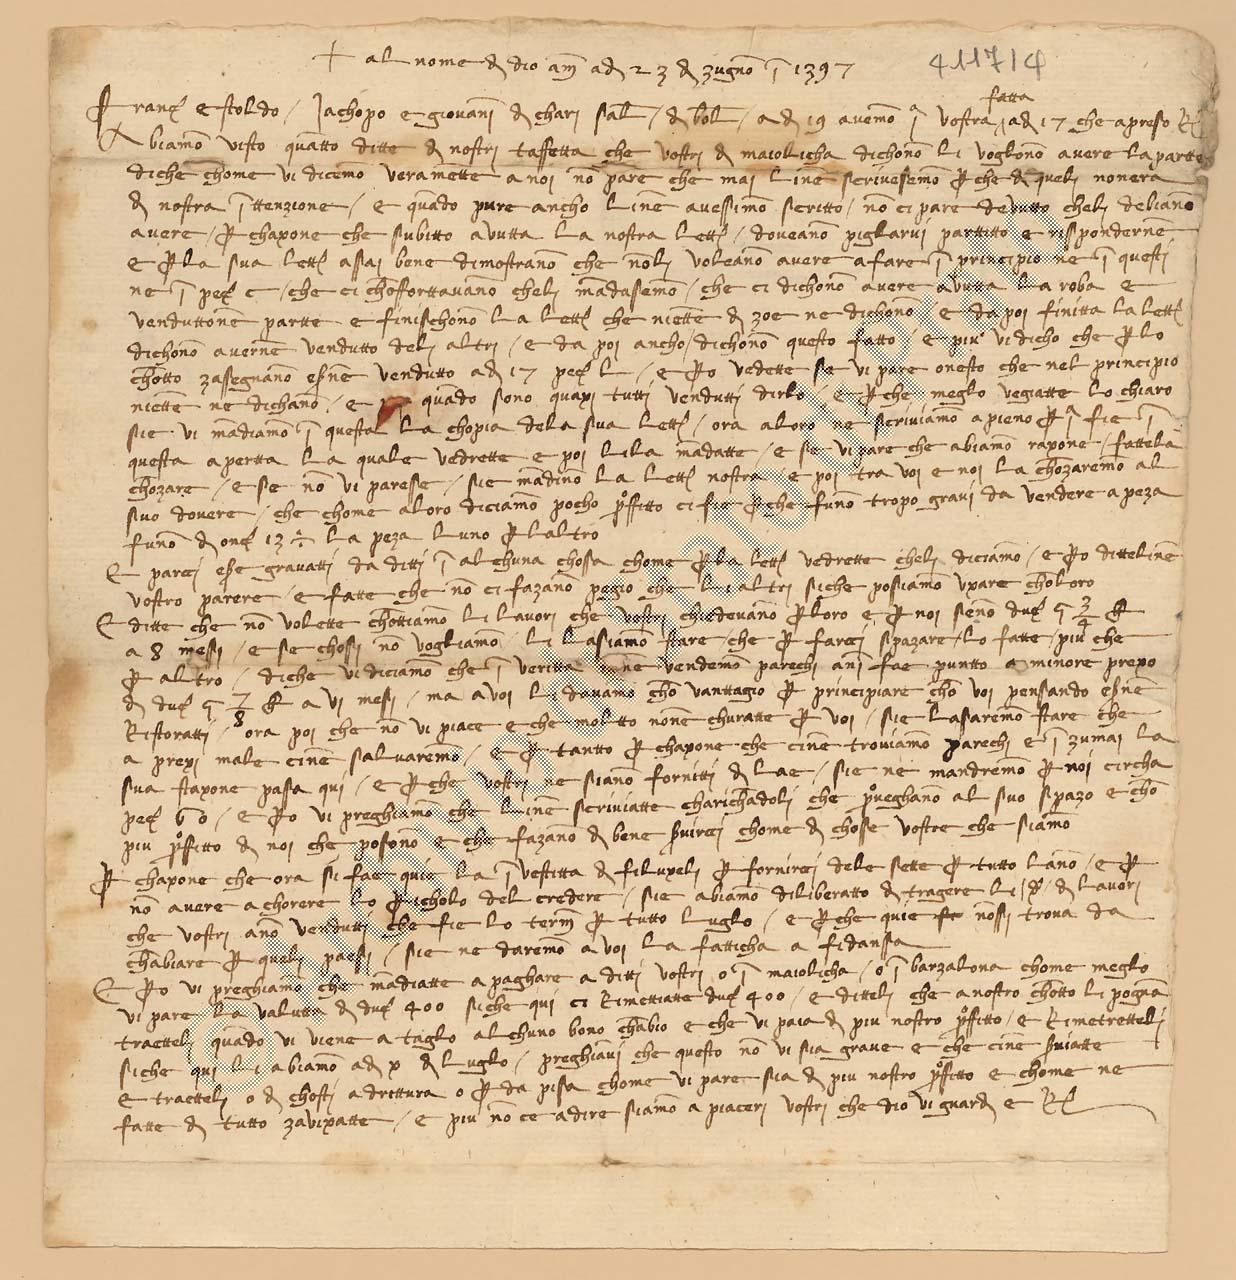 + al nome de dio am adi 23 de zugno i 1397
411714
fatta
Franc e stoldo / Jachopo e giovani de chari sal / de bol / adi 19 avemo i vostra adi 17 che apreso R
Abiamo visto quatto ditte de nostri taffetta che vostri de maiolicha dichono li voglono avere la partte
diche chome vi dicemo veramette a noi no pare che mai line scrivesemo p che de queli nonera
de nostra ittenzione / e quado pure ancho line avessimo scritto / no ci pare devutto cheli debiano
avere / p chaxone che subitto avutta la nostra lett / doveano piglarvi partitto e rispondernē
e p la sua lett assai bene dimostrano che noli voleano avere afare i principio ne i questi
ne i pez c / che ci chofforttavano cheli madasemo / che ci dichono avere avutta la roba e
venduttone partte e finischono la lett che niette de zoe ne dichono / e da poi finitta la lett
dichono averne vendutto deli altri / e da poi ancho dichono questo fatto / e piu vi dicho che p lo
chotto zassegnano esne vendutto adi 17 pez l / e po vedette se vi pare onesto che nel principio
niette ne dichano / e quado sono quaxi tutti vendutti dirlo / e p che meglo vegiatte lo chiaro
sie vi madiamo i questa la chopia dela sua lett / ora aloro ne scriviamo apieno p fie i
questa apertta la quale vedrette e poi lila madatte / e se vi pare che abiamo raxone / fattela
chozare / e se no vi paresse / sie madino la lett nostra e poi tra voi e noi la chozaremo al
suo dovere / che chome aloro diciamo pocho pffitto ci fie p che funo tropo gravi da vendere a peza
funo de onz 13 la peza luno p laltro
E pareci ese gravatti da ditti i alchuna chossa chome p la lett vedrette cheli diciamo / e po dittelinē
vostro parere / e fatte che no ci fazano pegio che li altri siche posiamo uxare choloro
E ditte che no volette chottiamo li lavori che vostri chiedevano p loro e p noi seno duc 9 3/4 lb
a 8 messi / e se chossi no vogliamo / li lasiamo stare / che p farci spazare lo fatte / piu che
p altro / diche vi diciamo che i veritta ne vendemo parechi ani fae puntto a minore prexo
de duc 9 7/8 lb a vi mesi / ma a voi li davamo cho vanttagio p principiare cho voi pensando esne
Ristoratti / ora poi che no vi piace e che moltto none churatte p voi / sie lasaremo stare che
a prexi male cine salvaremo / e p tantto p chaxone che cine troviamo parechi e i zumai la
sua staxone pasa qui / e p che vostri ne siano fornitti de lae / sie ne mandremo p noi circha
pez 60 / e po vi preghiamo che line scriviatte charichadoli che pveghano al suo spazo e cho
piu pffitto de noi che posono e che fazano de bene srvirci chome de chosse vostre che siamo
P chaxone che ora si fae quie la ivestitta de filuxeli p fornirci dele sette p tutto lano / e p
no avere achorere lo pricholo del credere / sie abiamo diliberatto de tragere li d de lavori
che vostri ano vendutti che fie lo term p tutto luglo / e p che quie nossi trova da
chabiare p queli paesi / sie ne daremo a voi la fatticha a fidansa
E po vi preghiamo che madiatte a paghare a ditti vostri o i maiolicha / o i barzalona chome meglo
vi pare la valutta de duc 400 siche qui ci Rimettiatte duc 400 / e ditteli che a nostro chotto li pogna
traetteli quado vi viene a taglo alchuno bono chabio e che vi paia de piu nostro pffitto / e Rimetretteli
siche qui li abiamo adi x de luglo / preghiavi che questo no vi sia grave e che cine sviatte
e traetteli o de chosti adrittura o p da pisa chome vi pare sia de piu nostro pffitto e chome ne
fatte de tutto zavixatte / e piu no ce a dire siamo a piaceri vostri che dio vi guardi e R